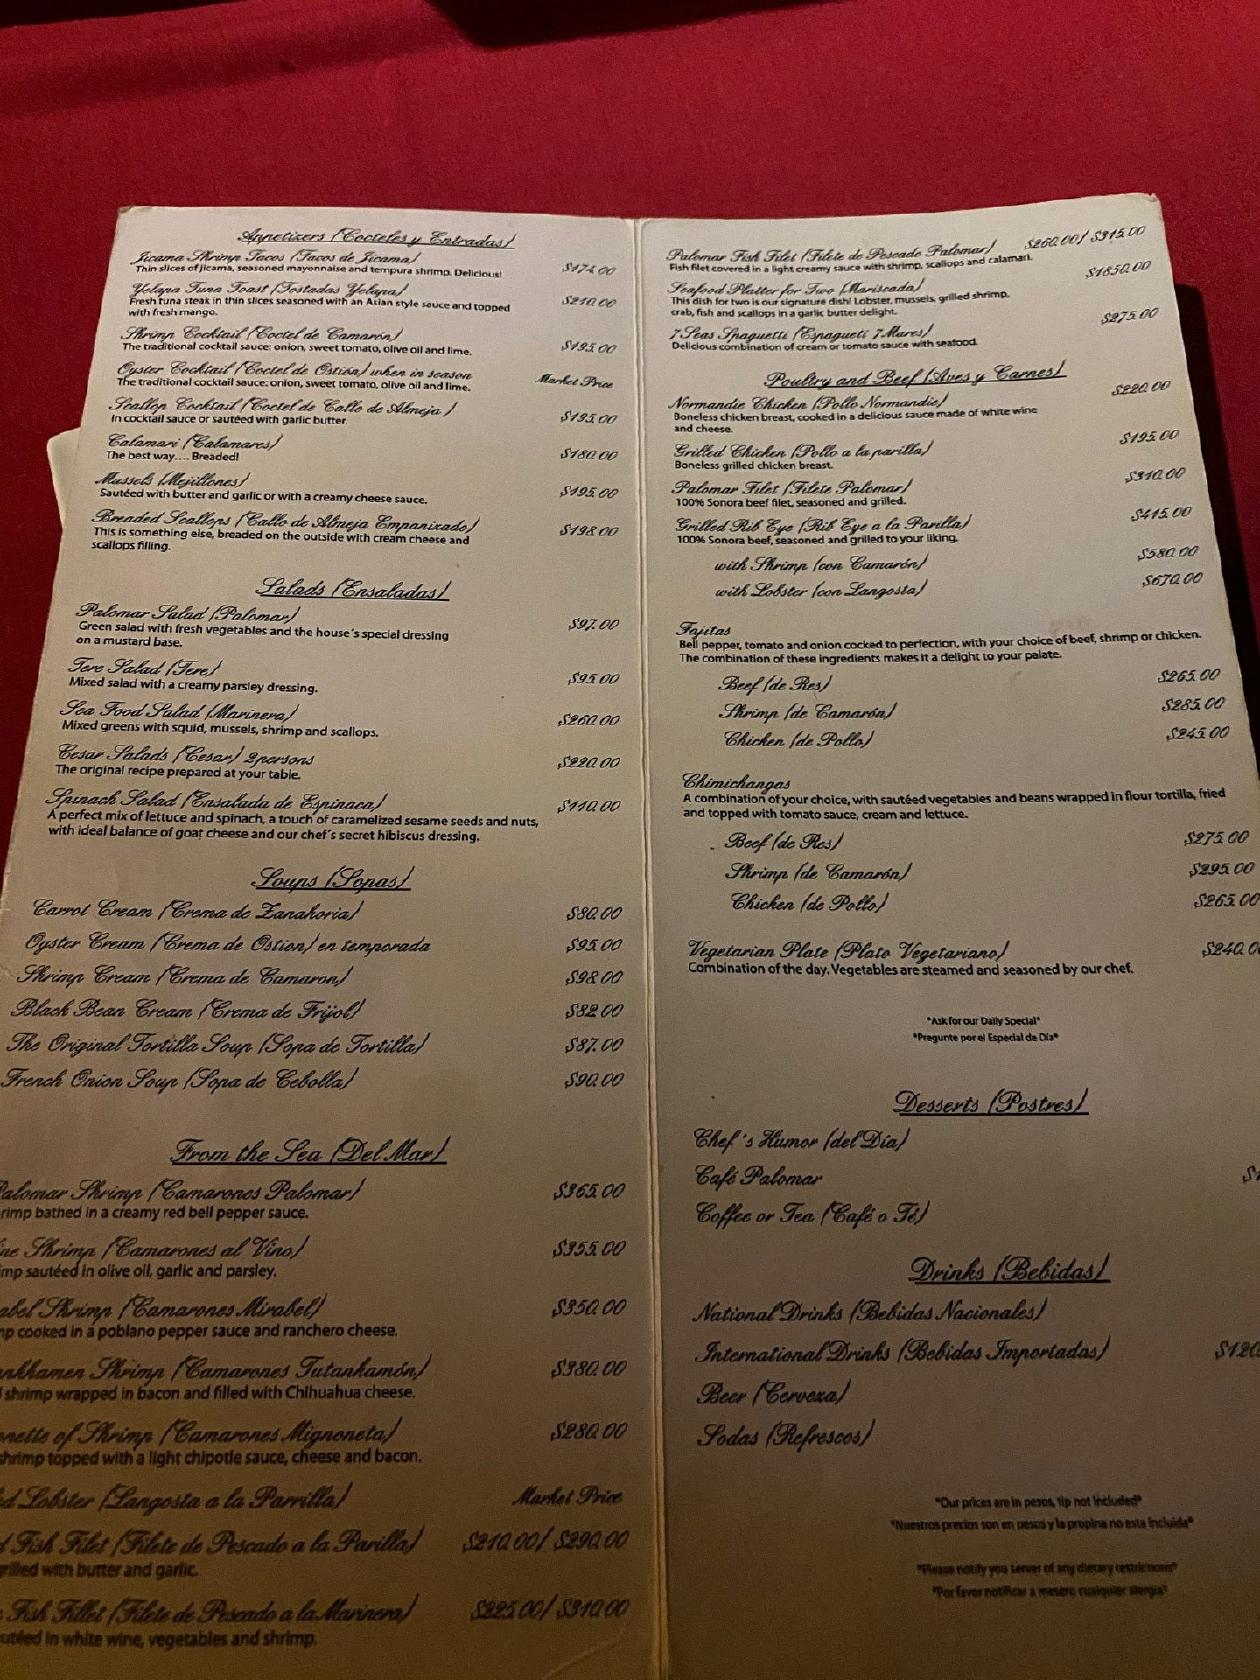 Appetizers (Cocteles y Entradas)
Jicama Shrimp Tacos (Tacos de Jicama) $174.00
Thin slices of jicama, seasoned mayonnaise and tempura shrimp. Delicious!
Yelapa Tuna Toast (Tostadas Yelapa) $210.00
Fresh tuna steak in thin slices seasoned with an Asian style sauce and topped
with fresh mango.
Shrimp Cocktail (Coctel de Camarón) $195.00
The traditional cocktail sauce: onion, sweet tomato, olive oil and lime.
Oyster Cocktail (Coctel de Ostión) when in season Market Price
The traditional cocktail sauce: onion, sweet tomato, olive oil and lime.
Scallop Cocktail (Coctel de Callo de Almeja) $195.00
In cocktail sauce or sautéed with garlic butter.
Calamari (Calamares) $180.00
The best way.... Breaded!
Mussels (Mejillones) $195.00
Sautéed with butter and garlic or with a creamy cheese sauce.
Breaded Scallops (Callo de Almeja Empanizado) $198.00
This is something else, breaded on the outside with cream cheese and
scallops filling.
Salads (Ensaladas)
Palomar Salad (Palomar) $97.00
Green salad with fresh vegetables and the house's special dressing
on a mustard base.
Tere Salad (Tere) $95.00
Mixed salad with a creamy parsley dressing.
Sea Food Salad (Marinera) $260.00
Mixed greens with squid, mussels, shrimp and scallops.
Cesar Salads (Cesar) 2persons $220.00
The original recipe prepared at your table.
Spinach Salad (Ensalada de Espinaca) $110.00
A perfect mix of lettuce and spinach, a touch of caramelized sesame seeds and nuts,
with ideal balance of goat cheese and our chef's secret hibiscus dressing.
Soups (Sopas)
Carrot Cream (Crema de Zanahoria) $80.00
Oyster Cream (Crema de Ostion) en temporada $95.00
Shrimp Cream (Crema de Camaron) $98.00
Black Bean Cream (Crema de Frijol) $82.00
The Original Tortilla Soup (Sopa de Tortilla) $87.00
French Onion Soup (Sopa de Cebolla) $90.00
From the Sea (Del Mar)
Palomar Shrimp (Camarones Palomar) $365.00
bathed in a creamy red bell pepper sauce.
Shrimp (Camarones al Vino) $355.00
sautéed in olive oil, garlic and parsley.
Shrimp (Camarones Mirabel) $350.00
cooked in a poblano pepper sauce and ranchero cheese.
Shrimp (Camarones Tutankamón) $380.00
shrimp wrapped in bacon and filled with Chihuahua cheese.
of Shrimp (Camarones Mignoneta) $280.00
shrimp topped with a light chipotle sauce, cheese and bacon.
Lobster (Langosta a la Parrilla) Market Price
Fish Filet (Filete de Pescado a la Parilla) $210.00/ $290.00
grilled with butter and garlic.
Fish Fillet (Filete de Pescado a la Marinera) $225.00/ $310.00
in white wine, vegetables and shrimp.
Palomar Fish Filet (Filete de Pescado Palomar) $260.00/ $315.00
Fish filet covered in a light creamy sauce with shrimp, scallops and calamari.
Seafood Platter for Two (Mariscada) $1850.00
This dish for two is our signature dish! Lobster, mussels, grilled shrimp,
crab, fish and scallops in a garlic butter delight.
7 Seas Spaguetti (Espagueti 7 Mares) $275.00
Delicious combination of cream or tomato sauce with seafood.
Poultry and Beef (Aves y Carnes)
Normandie Chicken (Pollo Normandie) $220.00
Boneless chicken breast, cooked in a delicious sauce made of white wine
and cheese.
Grilled Chicken (Pollo a la parilla) $195.00
Boneless grilled chicken breast.
Palomar Filet (Filete Palomar) $310.00
100% Sonora beef filet, seasoned and grilled.
Grilled Rib Eye (Rib Eye a la Parilla) $415.00
100% Sonora beef, seasoned and grilled to your liking.
with Shrimp (con Camarón) $580.00
with Lobster (con Langosta) $670.00
Fajitas
Bell pepper, tomato and onion cocked to perfection, with your choice of beef, shrimp or chicken.
The combination of these ingredients makes it a delight to your palate.
Beef (de Res) $265.00
Shrimp (de Camarón) $285.00
Chicken (de Pollo) $245.00
Chimichangas
A combination of your choice, with sautéed vegetables and beans wrapped in flour tortilla, fried
and topped with tomato sauce, cream and lettuce.
Beef (de Res) $275.00
Shrimp (de Camarón) $295.00
Chicken (de Pollo) $265.00
Vegetarian Plate (Plato Vegetariano) $240.0
Combination of the day. Vegetables are steamed and seasoned by our chef.
*Ask for our Daily Special*
*Pregunte por el Especial de Día*
Desserts (Postres)
Chef's Humor (del Día)
Café Palomar
Coffee or Tea (Café o Té)
Drinks (Bebidas)
National Drinks (Bebidas Nacionales)
International Drinks (Bebidas Importadas) $120
Beer (Cerveza)
Sodas (Refrescos)
*Our prices are in pesos, tip not included*
*Nuestros precios son en pesos y la propina no esta incluida*
*Please notify you server of any dietary restrictions*
*Por favor notificar a mesero cualquier alergia*